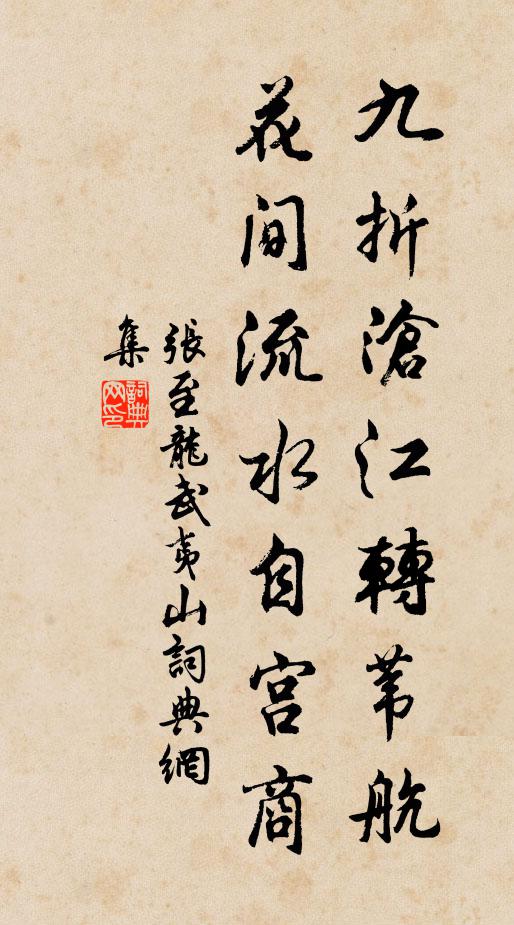 九折滄江轉葦航
花间流水自宫商
張至龍武夷山詞典網
集
詞典
网印